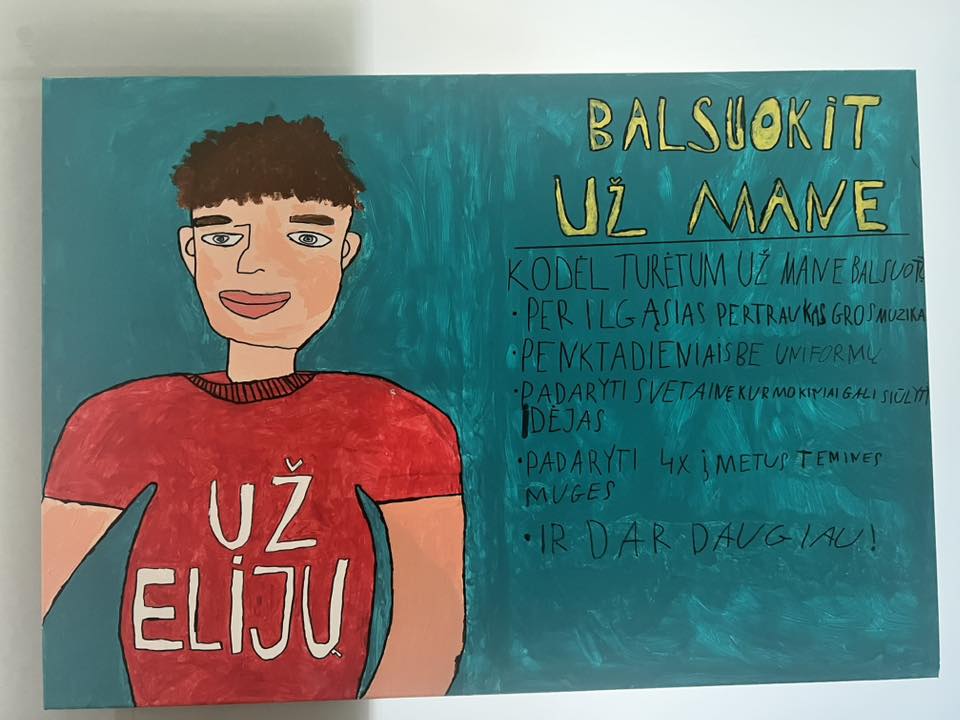 BALSUOKIT
UŽ MANE
KODĖL TURĖTUM UŽ MANE BALSUOTI
• PER ILGĄSIAS PERTRAUKAS GROS MUZIKA
• PENKTADIENIAIS BE UNIFORMŲ
• PADARYTI SVETAINĘ KUR MOKINIAI GALI SIŪLYTI
IDĖJAS
• PADARYTI 4X Į METUS TEMINES
MUGES
• IR DAR DAUGIAU!
UŽ
ELIJŲ